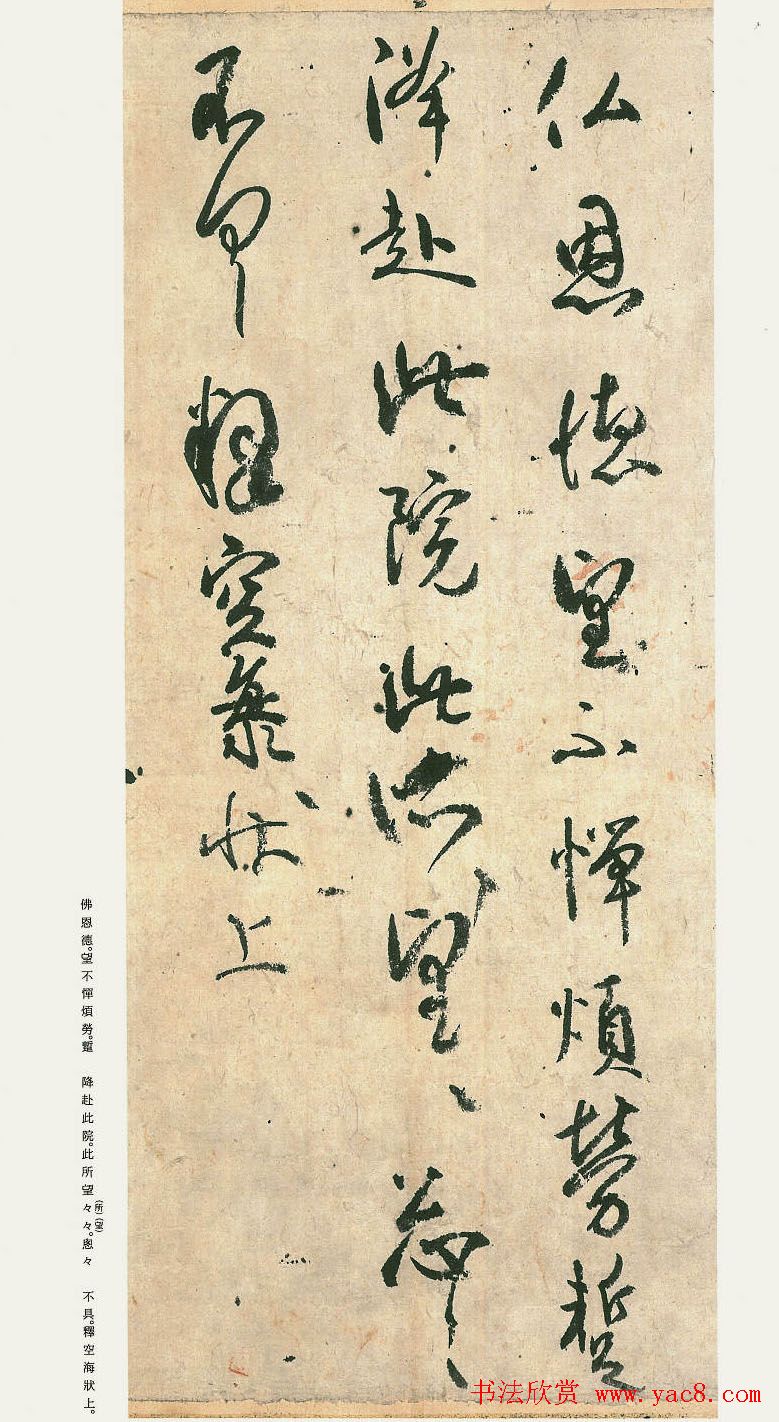 仏恩德望不憚煩勞蹔
降赴此院此所望〻〻怱〻
不具釋空海狀上
佛恩德。望不憚煩勞。蹔 降赴此院。此所望々々。(所)(望)恩々 不具。釋空海狀上。
书法欣赏 www.yac8.com